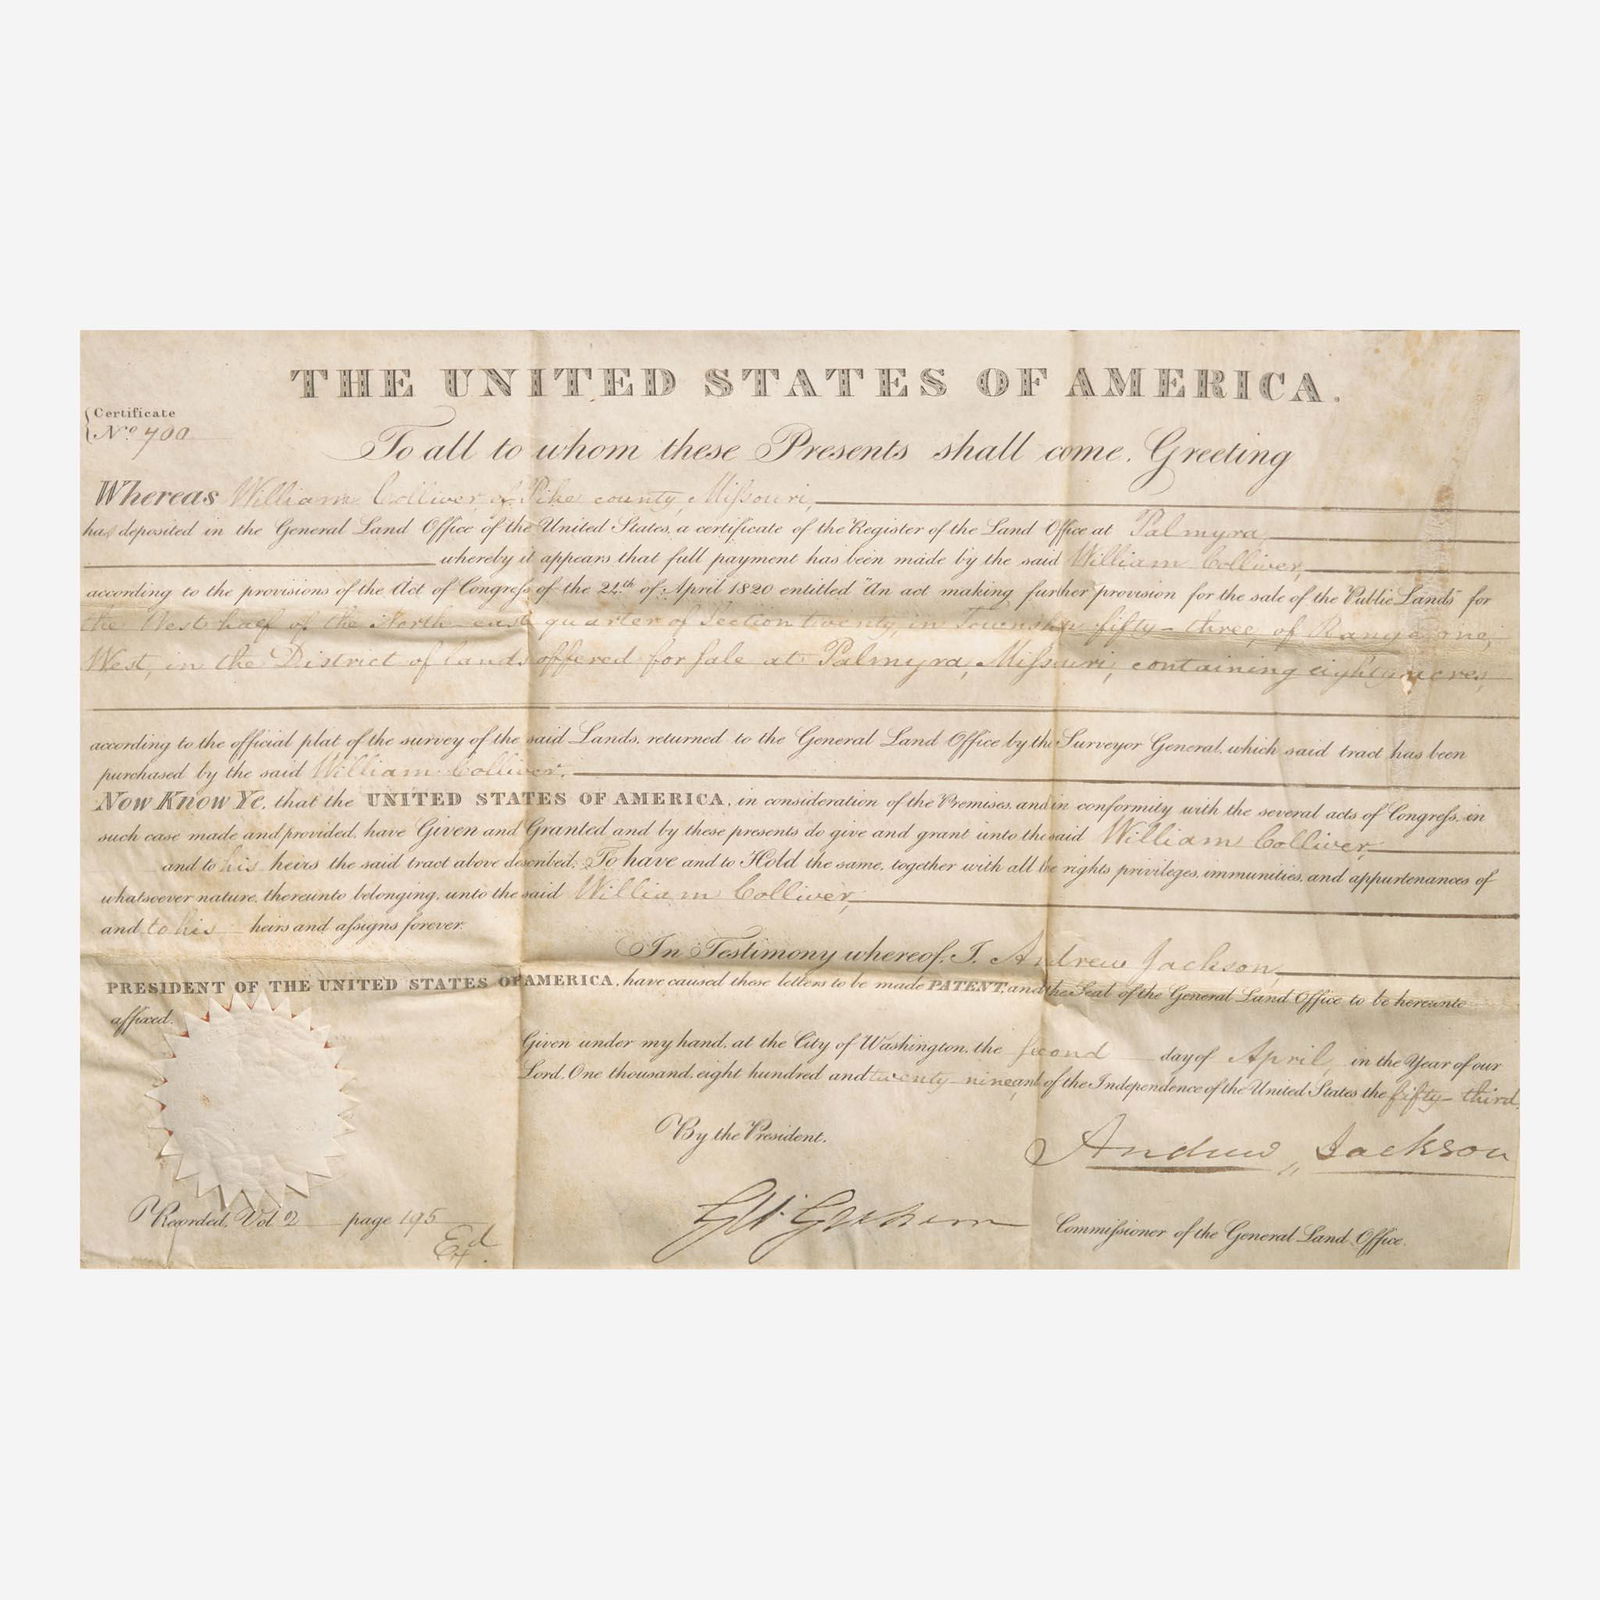 THE UNITED STATES OF AMERICA.
Certificate
No 700
To all to whom these Presents shall come, Greeting
Whereas William Colliver, of Pike county, Mißouri,
has deposited in the General Land Office of the United States, a certificate of the Register of the Land Office at Palmyra,
whereby it appears that full payment has been made by the said William Colliver,
according to the provisions of the Act of Congreſs of the 24th of April 1820 entitled "An act making further provision for the sale of the Public Lands" for
the West half of the North east quarter of Section twenty, in Township fifty-three, of Range one,
West, in the District of lands offered for sale at Palmyra, Mißouri, containing eighty acres,
according to the official plat of the survey of the said Lands, returned to the General Land Office by the Surveyor General, which said tract has been
purchased by the said William Colliver,
Now Know Ye, that the UNITED STATES OF AMERICA, in consideration of the Premises, and in conformity with the several acts of Congreſs, in
such case made and provided, have Given and Granted and by these presents do give and grant unto the said William Colliver,
and to his heirs the said tract above described; To have and to Hold the same, together with all the rights privileges, immunities, and appurtenances of
whatsoever nature, thereunto belonging, unto the said William Colliver,
and to his heirs and aſsigns forever.
In Testimony whereof, I, Andrew Jackson,
PRESIDENT OF THE UNITED STATES OF AMERICA, have caused these letters to be made PATENT, and the Seal of the General Land Office to be hereunto
affixed.
Given under my hand, at the City of Washington, the second day of April, in the Year of our
Lord, One thousand, eight hundred and twenty-nine, and of the Independence of the United States the fifty-third.
By the President,
Andrew Jackson
Recorded, Vol 2 page 195
Exd.
G. W. Graham Commiſsioner of the General Land Office.